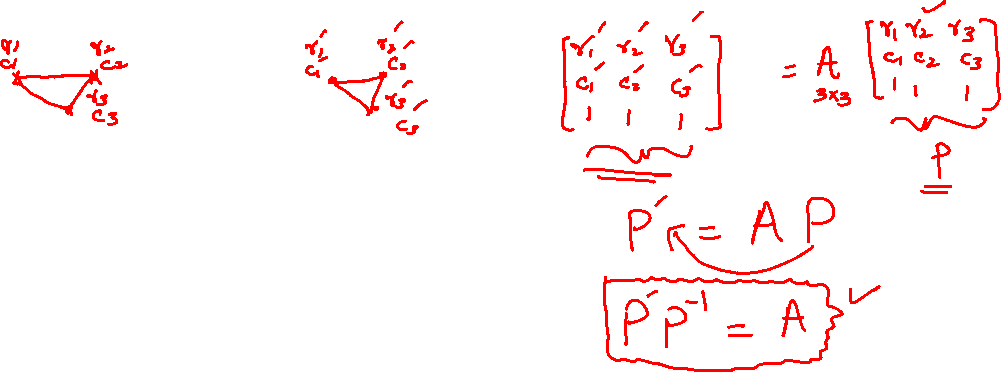 r₁ r₂
c₁ c₂
r₃
c₃
r₁′ r₂′
c₁′ c₂′
r₃′
c₃′
[r₁′ r₂′ r₃′
c₁′ c₂′ c₃′
1 1 1]
= A
3×3
[r₁ r₂ r₃
c₁ c₂ c₃
1 1 1]
P
P′ = A P
P′P⁻¹ = A